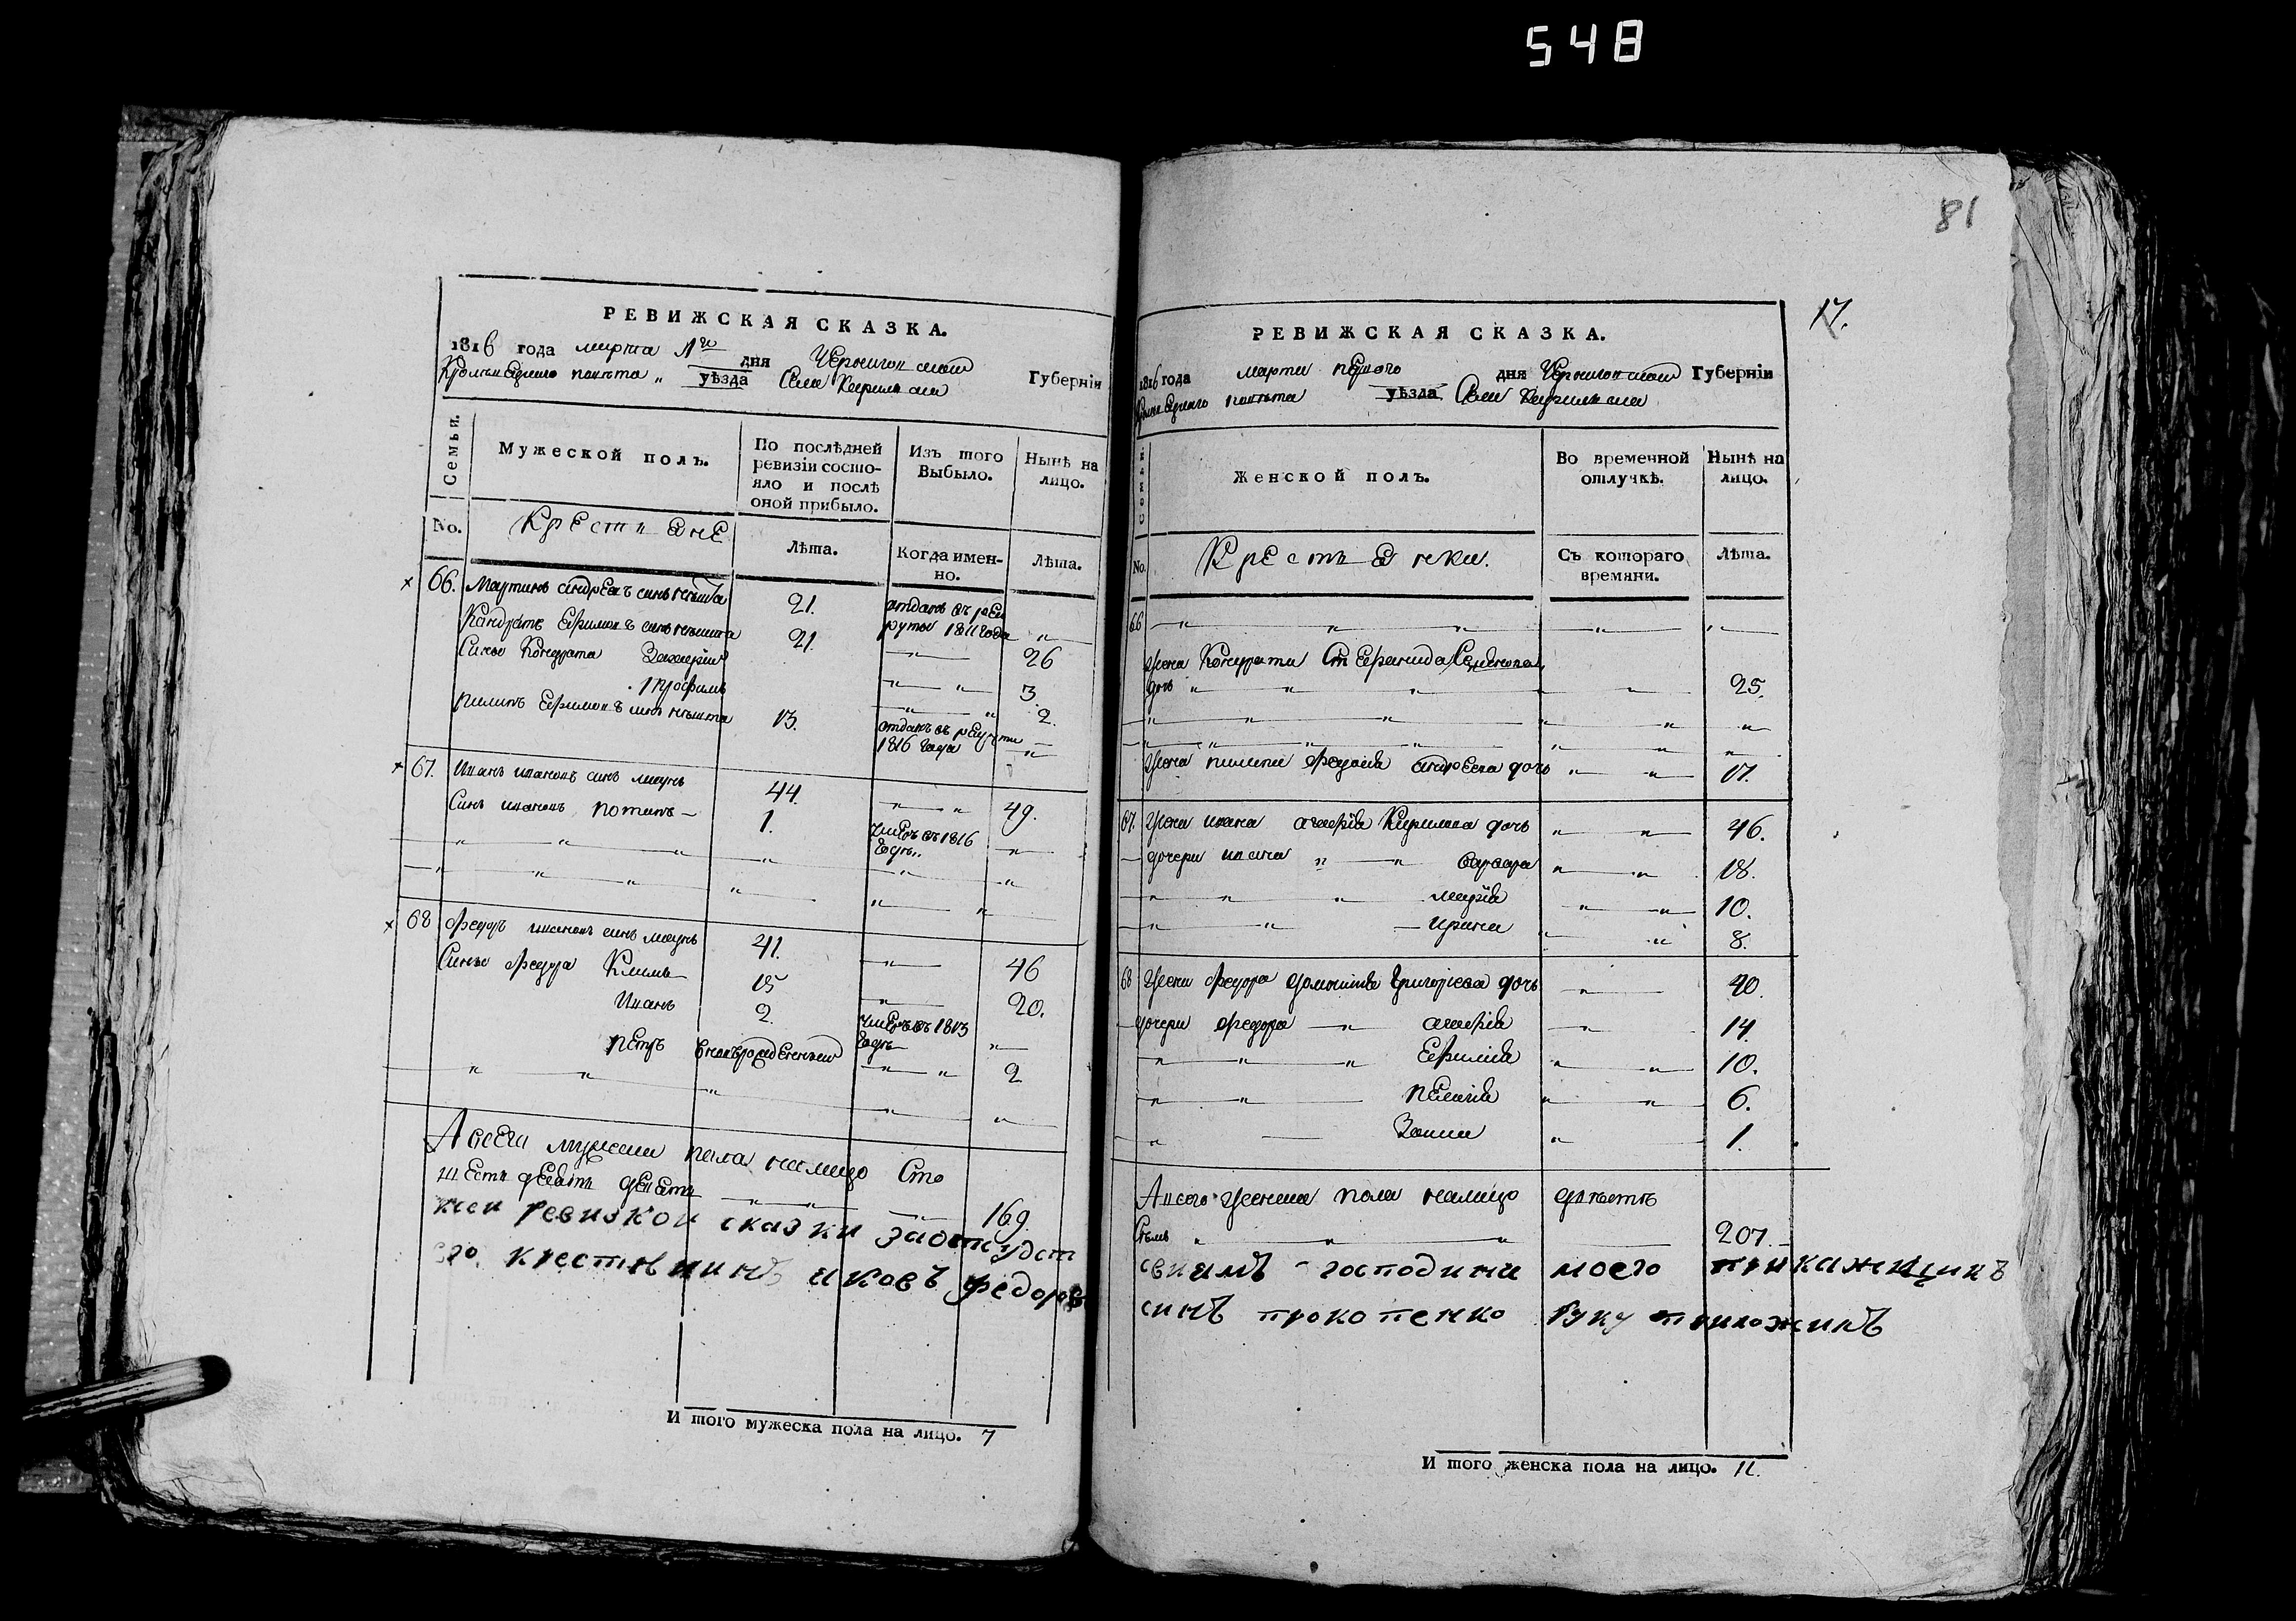 548
81
17.
РЕВИЖСКАЯ СКАЗКА.
1816 года марта 1го дня Черниговской Губерніи
Кролевецкого повѣта „ уѣзда Села
Семьи.
Мужеской полъ.
По послѣдней ревизіи состо-
яло и послѣ оной прибыло.
Изъ того Выбыло.
Нынѣ на лицо.
No. Крестьяне Лѣта. Когда имен-но. Лѣта.
66. Мартинъ андреевъ синъ 21. отданъ въ рекруты 1811 года „
Кандратъ Ефимовъ синъ 21. „ 26
Сины Кондрата Захарій „ „ 3.
Трофимъ „ „ 2.
пилипъ Ефимовъ синъ 13. отданъ въ рекруты 1816 года „
67. Иванъ ивановъ синъ 44. „ „ 49.
Синъ ивановъ потапъ 1. умеръ въ 1816 годѣ „
68 Федоръ ивановъ синъ 41. „ 46
Сины федора Климъ 15 „ 20.
Иванъ 2. умеръ въ 1813 годѣ „
петръ вновьрожденный „ „ 2
А всего мужеска пола налицо Сто
шестьдесятъ девять 169.
къ сей ревизкои сказки заотсудст
его крестянинъ яковъ федоровъ
И того мужеска пола на лицо. 7
РЕВИЖСКАЯ СКАЗКА.
1816 года марта первого дня Черниговской Губерніи
повѣта уѣзда Села
Семьи.
Женской полъ.
Во временной отлучкѣ.
Нынѣ на лицо.
No. Крестьянки. Съ котораго времяни. Лѣта.
66 „ „ „ „ „
Жена Кондрата Стефанида
дочь „ „ „ „ 25.
Жена пилипа Федосія андреева дочь „ „ 17.
67. Жена ивана агафія Кирилова дочь „ „ 46.
дочери ивана „ „ варвара „ „ 18.
„ „ „ марія „ „ 10.
„ „ ирина „ „ 8.
68 Жена федора домникія григорієва дочь „ 40.
дочери федора „ агафія „ 14.
„ „ „ Ефимія „ „ 10.
„ „ пелагія „ „ 6.
„ Ганна „ 1.
А всего женска пола налицо двѣсти
Семъ „ „ „ 207.
господина моего прикажщикъ
синъ прокопенко руку приложилъ
И того женска пола на лицо. 11.